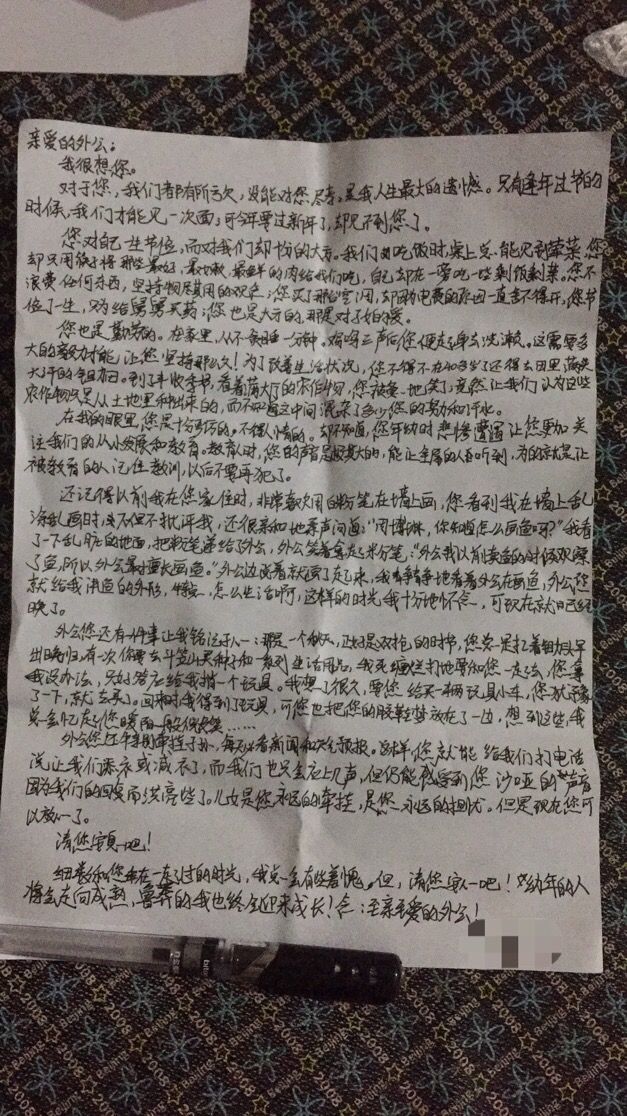 亲爱的外公:
我很想您。
对于您,我们者都有所亏欠,没能对您尽孝。是我人生最大的遗憾。只有逢年过节的
时候,我们才能见一次面;可今年要过新年了,却见不到您了。
您对自己一生节俭,而对我们却十分的大方。我们吃饭时,桌上总能见到荤菜,您
却只用筷子将那些最好,最嫩,最鲜的肉给我们吃,自己却在一旁吃一些剩饭剩菜。您不
浪费任何东西,坚持物尽其用的观念;您买了那台空调,却因为电费的原因一直舍不得开,您节
俭了一生,对给舅舅买药,您也是大方的,那是对子的爱。
您也是勤劳的。在家里,从不多睡一分钟,鸡鸣三声后,您便起身去洗漱。这需要多
大的毅力才能让您坚持那么久!为了改善生活状况,您不得不在
大汗的 到了丰收季节,看着满大厅的农作物,您疲惫地笑了,竟然让我们认为这些
农作物只是从土地里种出来的,而不知道这中间混杂了多少您的劳动和汗水。
在我的眼里,您是十分严厉的。不徇人情的。却不知道,您年幼时悲惨遭遇让您更加关
注我们的从小发展和教育。教育人时,您的声音是极其大的,能让全屋的人都听到,为的就是让
被教育的人记住教训,以后不要再犯了。
还记得以前我在您家住时,非常喜欢用白粉笔在墙上画,您看到我在墙上乱
涂乱画时,并不但不批评我,还很亲和地轻声问道:“周博琳,你知道怎么画鱼呀?”我看
了一下乱脏的地面,把粉笔递给了外公,外公笑着拿起了半粉笔,“外公我以前卖鱼的时候观察
了鱼,所以外公最擅长画鱼。”外公边说着就画了起来,我静静地看着外公在画鱼,外公您
就给我讲鱼的外形,怎么生活啊,这样的时光我十分地怀念,可现在就已经
晚了。
外公您还有件事让我铭记于心:那是一个秋天,正好是双抢的时节,您总是扛着锄头早
出晚归,有一次你要去斗笠山买种子和一系列生活用品,我死缠烂打地要和您一起去,您拿
我没办法,只好答应给我捎一个玩具。我想了很久,要您给买一辆玩具小车,您犹豫
了一下,就去买了。回来时我得到了玩具,可您也把您的胶鞋放在了一边,想到这些,我
总会忆起您暖阳一般的笑……
外公您还牵挂子孙,每天必看新闻和天气预报。这样您就能给我们打电话
说让我们添衣或减衣了,而我们也只会应上几声,但仍能感受到您沙哑的声音
因为我们的回复而洪亮些了。儿女是您永远的牵挂,是您永远的担忧。但是现在您可
以放下了。
请您安息吧!
细数和您在一起过的时光,我总会有些羞愧。但,请您安心吧!幼年的人
将会走向成熟,鲁莽的我也终会迎来成长!念:至亲至爱的外公!
Beijing 2008